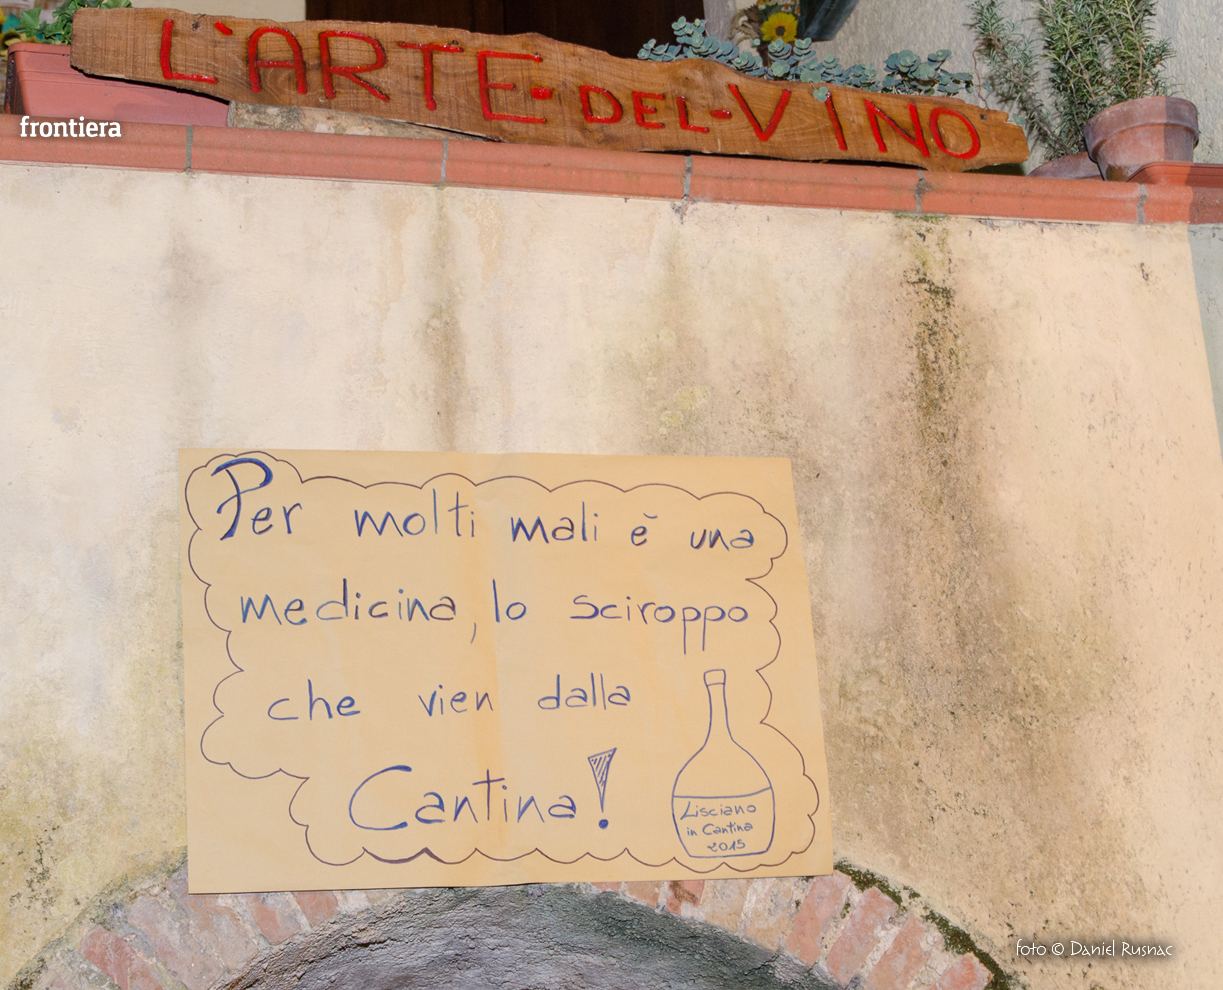 L'ARTE-DEL-VINO
frontiera
Per molti mali è una
medicina, lo sciroppo
che vien dalla
Cantina!
Lisciano
in Cantina
2015
foto © Daniel Rusnac